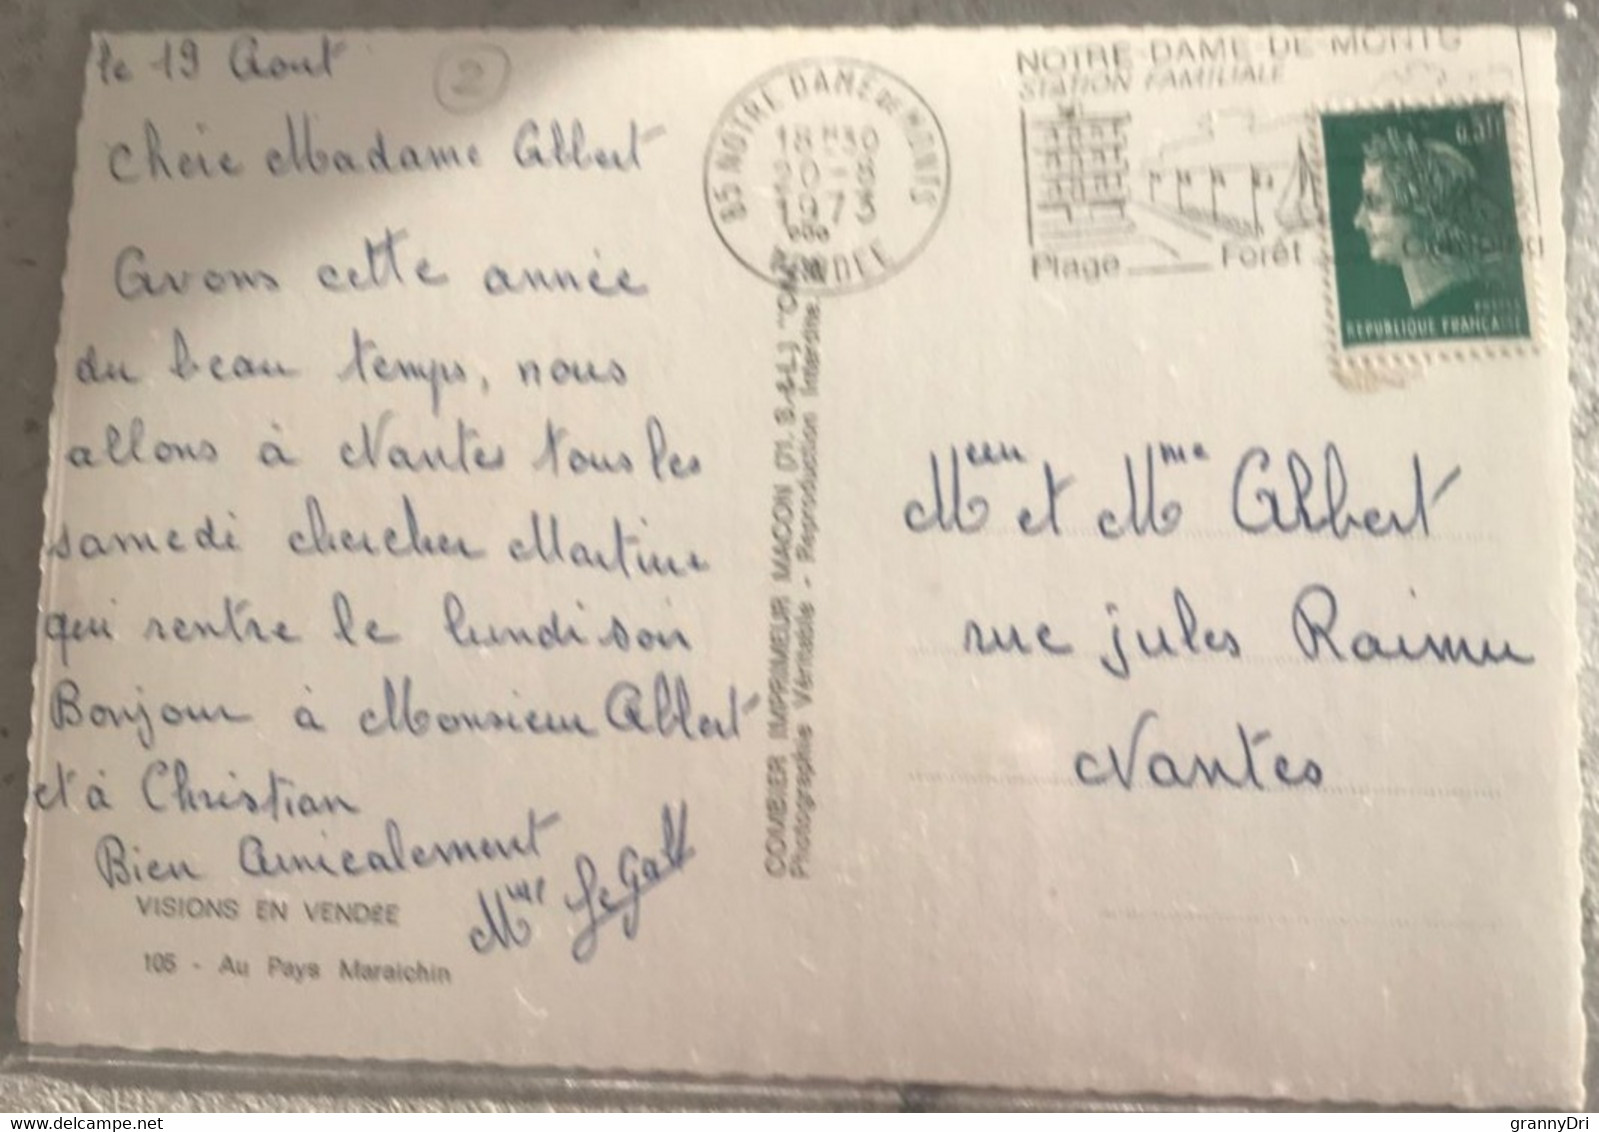 le 19 Aout
2
Chère Madame Albert
Avons cette année
du beau temps, nous
allons à Nantes tous les
samedi chercher Martine
qui rentre le lundi soir
Bonjour à Monsieur Albert
et à Christian
Bien Amicalement
Mme Le Gall
VISIONS EN VENDÉE
105 - Au Pays Maraichin
COMBIER IMPRIMEUR MACON (71. S.-&-L.) "CIM"
Photographie Véritable - Reproduction Interdite
85 NOTRE DAME DE MONTS
18 H30
1973
VENDEE
NOTRE-DAME-DE-MONTS
STATION FAMILIALE
Plage Forêt
POSTES
REPUBLIQUE FRANÇAISE
et Mme Albert
rue jules Raimu
Nantes
grannyDri